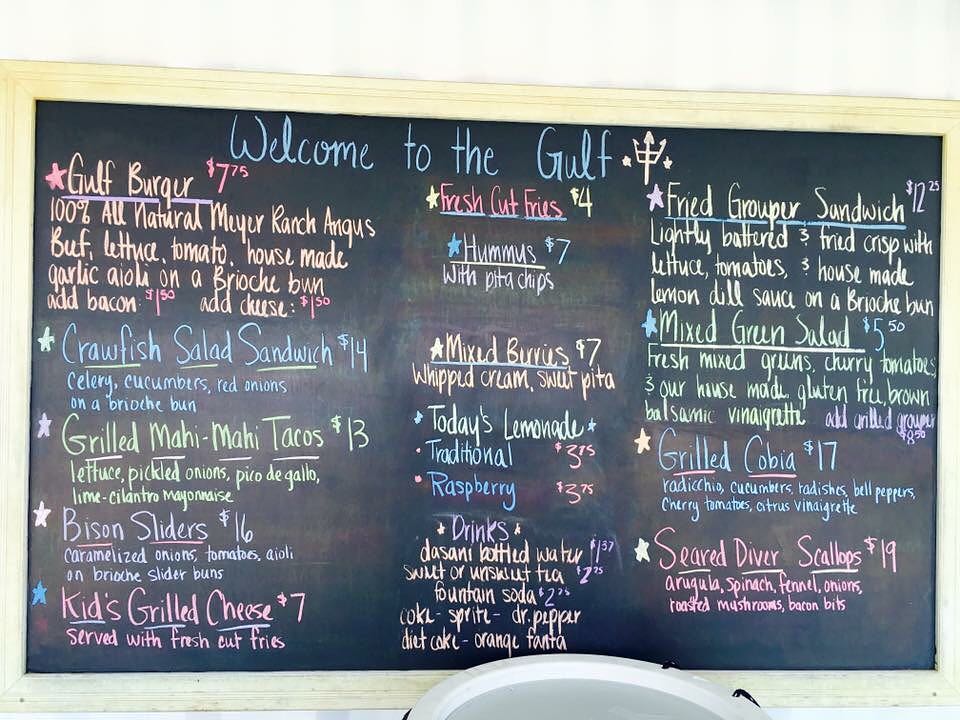 Welcome to the Gulf
Gulf Burger $7.75
100% All Natural Meyer Ranch Angus
Beef, lettuce, tomato, house made
garlic aioli on a Brioche bun
add bacon: $1.50 add cheese: $1.50
Crawfish Salad Sandwich $14
celery, cucumbers, red onions
on a brioche bun
Grilled Mahi-Mahi Tacos $13
lettuce, pickled onions, pico de gallo,
lime-cilantro mayonnaise
Bison Sliders $16
caramelized onions, tomatoes, aioli
on brioche slider buns
Kid's Grilled Cheese $7
served with fresh cut fries
Fresh Cut Fries $4
Hummus $7
with pita chips
Mixed Berries $7
Whipped cream, sweet pita
Today's Lemonade
Traditional $3.75
Raspberry $3.75
Drinks
dasani bottled water $1.37
sweet or unsweet tea $2.25
fountain soda $2.25
coke - sprite - dr. pepper
diet coke - orange fanta
Fried Grouper Sandwich $12.25
Lightly battered & fried crisp with
lettuce, tomatoes, & house made
lemon dill sauce on a Brioche bun
Mixed Green Salad $5.50
Fresh mixed greens, cherry tomatoes,
& our house made, gluten free, brown
balsamic vinaigrette add grilled grouper
$8.50
Grilled Cobia $17
radicchio, cucumbers, radishes, bell peppers,
cherry tomatoes, citrus vinaigrette
Seared Diver Scallops $19
arugula, spinach, fennel, onions,
roasted mushrooms, bacon bits